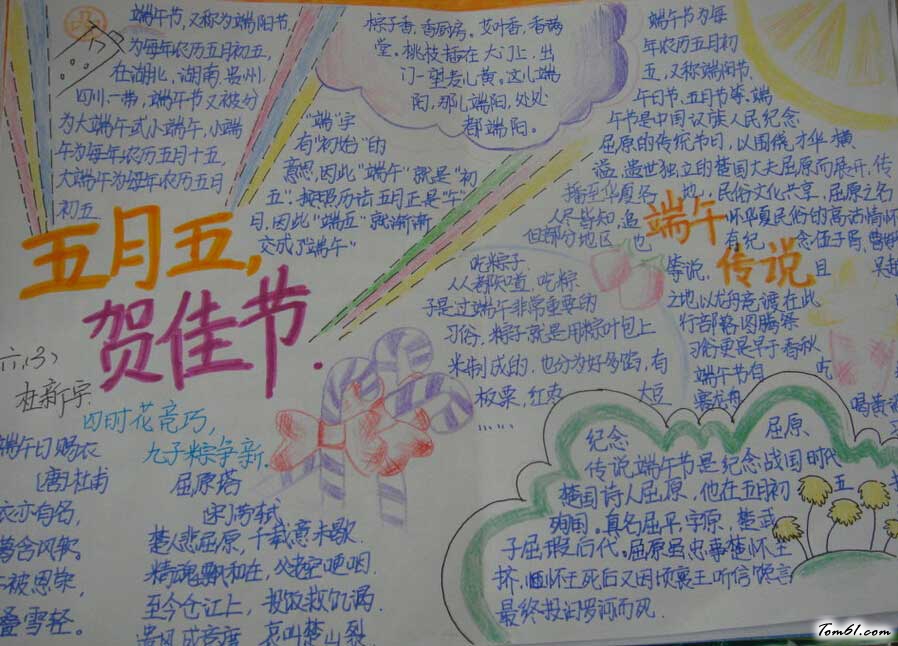 端午节,又称为端阳节,
为每年农历五月初五,
在湖北、湖南、贵州、
四川一带,端午节又被分
为大端午或小端午,小端
午为每年农历五月十五,
大端午为每年农历五月
初五
粽子香,香厨房。艾叶香,香满
堂。桃枝插在大门上,出
门一望麦儿黄。这儿端
阳,那儿端阳,处处
都端阳。
端午节为每
年农历五月初
五,又称端阳节、
午日节、五月节等、端
午节是中国汉族人民纪念
屈原的传统节日,以围绕才华横
溢、遗世独立的楚国大夫屈原而展开,传
播至华夏各地,民俗文化共享,屈原之名
人尽皆知,追怀华夏民俗的高洁情怀
但部分地区也有纪念伍子胥、曹
等说,且吴越
之地以龙舟竞渡在此
行部落图腾祭
习俗更是早于春秋
端午节有吃
赛龙舟
喝黄
端午
传说
"端"字
有"初始"的
意思,因此"端午"就是"初
五"。按照历法五月正是"午"
月,因此"端五"就渐渐
变成了"端午"
五月五,
贺佳节.
吃粽子
人人都知道,吃粽
子是过端午非常重要的
习俗,粽子就是用粽叶包上
米制成的,也分为好多馅,有
板栗,红枣大豆
......
六(3)
杜新宇
四时花竞巧,
九子粽争新.
端午日赐衣
(唐)杜甫
衣亦有名,
葛含风软。
被恩荣,
叠雪轻。
屈原塔
(宋)苏轼
楚人悲屈原,千载意未歇.
精魂飘何在,父老空哽咽.
至今仓江上,投饭救饥渴.
遗风成竞渡,哀叫楚山裂.
纪念屈原
传说端午节是纪念战国时代
楚国诗人屈原,他在五月初五
殉国。真名屈平,字原,楚武
子屈瑕后代。屈原虽忠事楚怀王
挤,怀王死后又因顷襄王听信谗言
最终投汨罗河而死.
Tom61.com